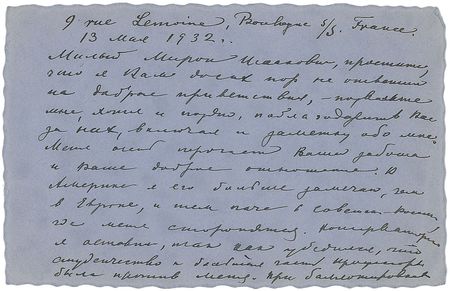 9 rue Lemoine, Boulogne s/S. France.
13 Мая 1932 г.
Милый Мирон Исаакович, простите,
что я Вам до сих пор не ответил
на доброе приветствие, – позвольте
мне, хотя и поздно, поблагодарить Вас
за них, включая и заметку обо мне.
Меня особ трогает Ваша забота
и Ваше доброе отношение. В
Америке я его больше замечаю, чем
в Европе, и тем паче в советск.
где меня сторонятся. Консерваторию
я оставил, так как убедился, что
студенчество и большая часть профессоры
была против меня. При баллотировке